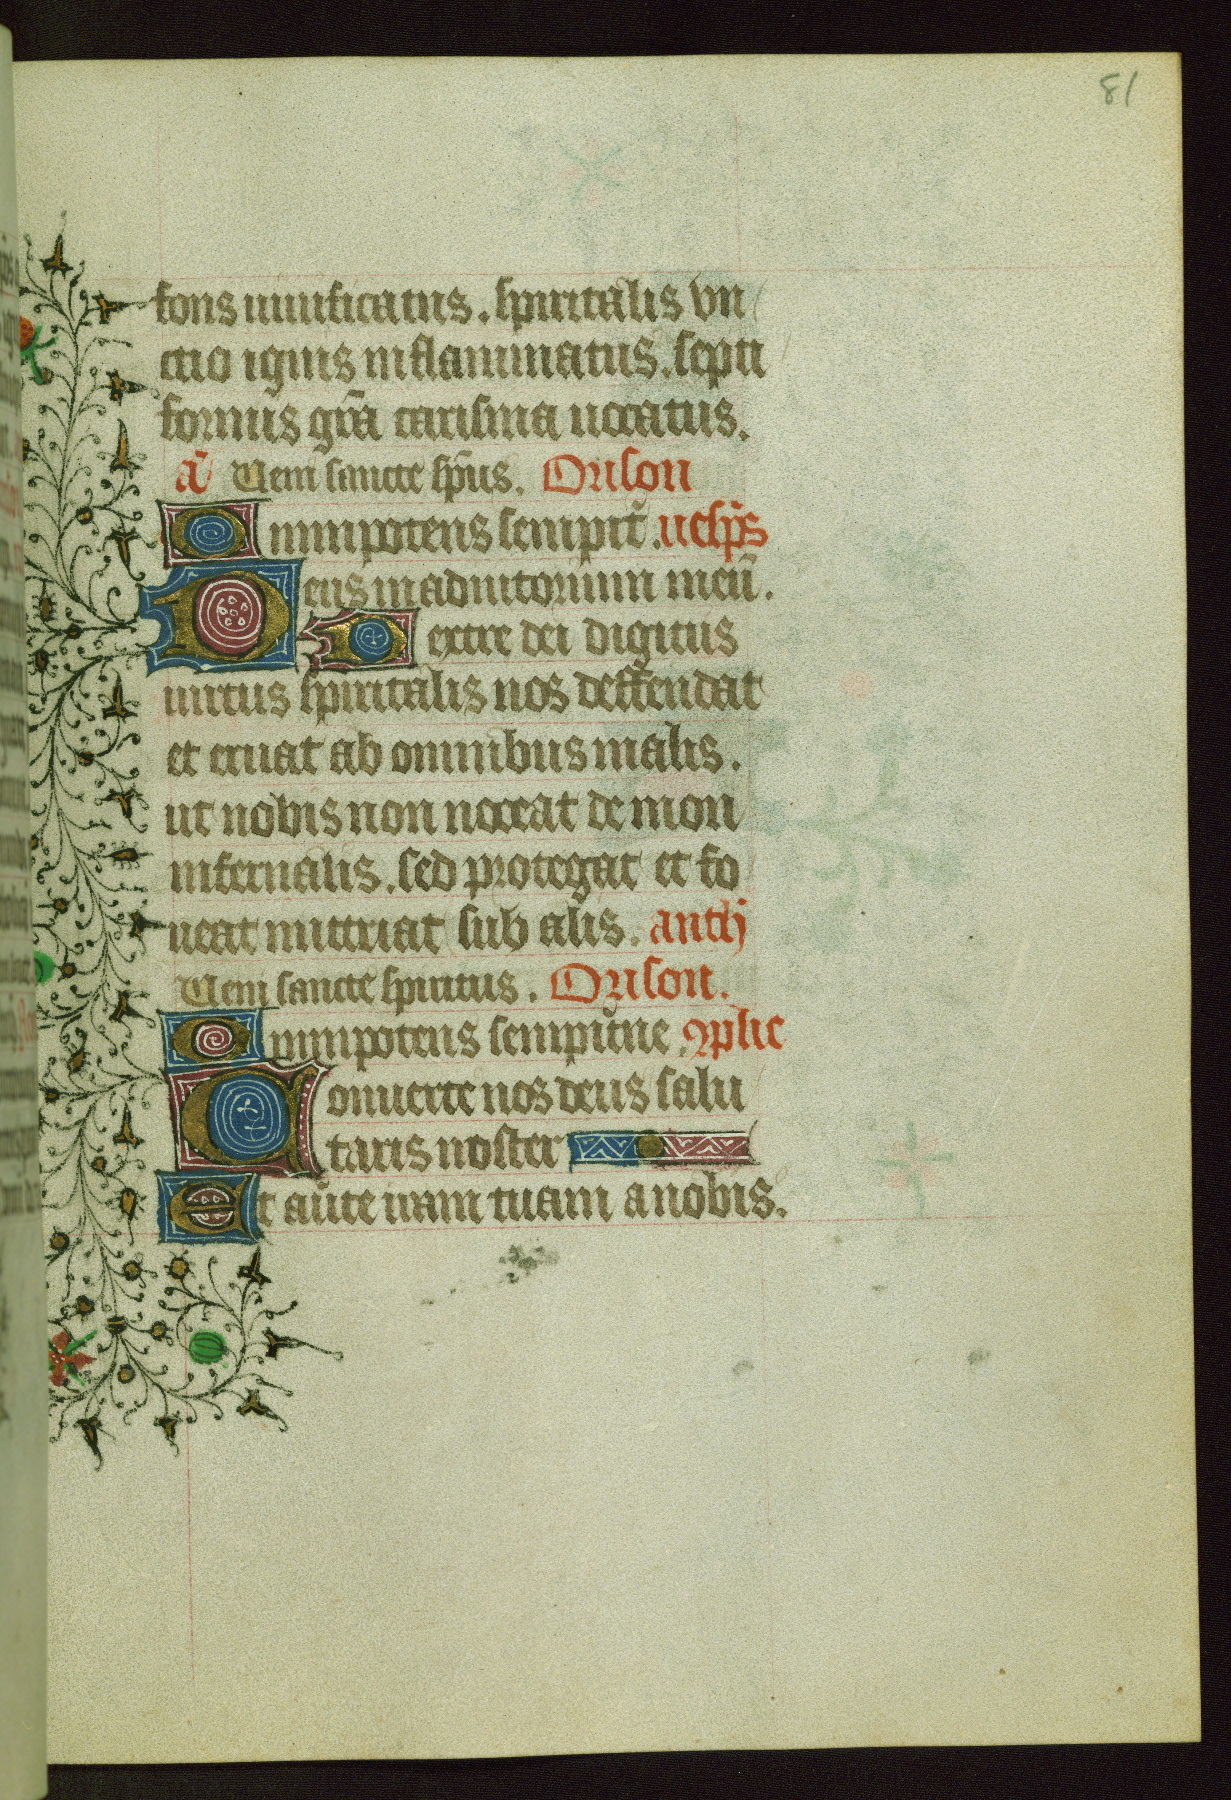 81
fons uiuificatus. spiritalis un
ctio ignis inflammatus. septi
formis gr̃a carisma uocatus.
añ Ueni sancte sp̃us. Orison
Omnipotens sempit̃. uesp̃s
Deus in adiutorium meũ.
Dextre dei digitus
uirtus spiritalis nos deffendat
et eruat ab omnibus malis.
ut nobis non noceat demon
infernalis. sed protegat et fo
ueat nuttriat sub alis. anth
Ueni sancte spiritus. Orison.
Omnipotens sempit̃ne ꝯplie
Conuerte nos deus salu
taris noster
Et aũte iram tuam a nobis.